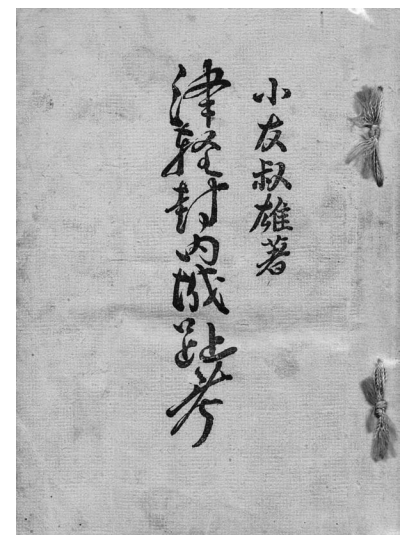 小友叔雄著
津軽封内城趾考